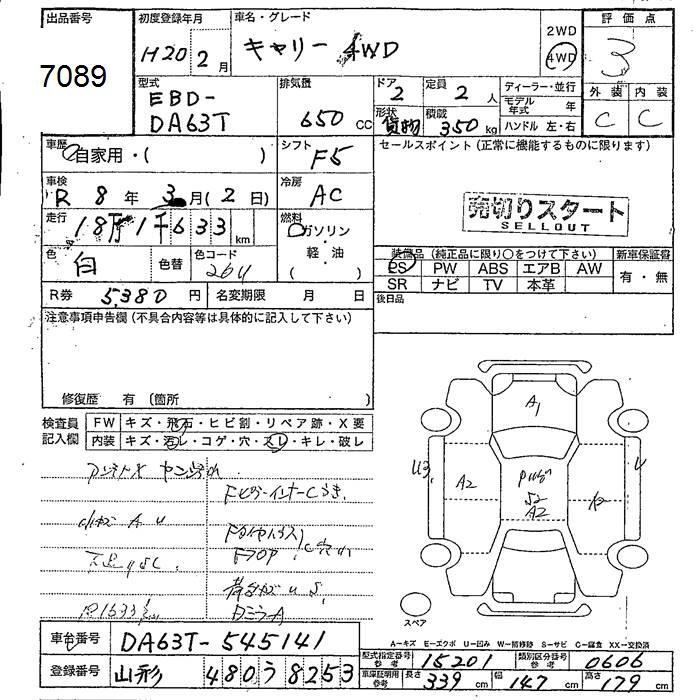 出品番号
7089
初度登録年月
H20 2月
車名・グレード
キャリー 4WD
2WD
4WD
評価点
3
外装 内装
C C
型式
EBD-
DA63T
排気量
650 cc
ドア
2
定員
2 人
形状
貨物
積載
350 kg
ディーラー・並行
モデル年式 年
ハンドル 左・右
車歴
自家用・( )
シフト
F5
セールスポイント (正常に機能するものに限ります)
車検
R 8年 3月(2日)
冷房
AC
売切りスタート
SELLOUT
走行
18万1千633 km
燃料
ガソリン
・
軽・油
( )
色
白
色替
色コード
26U
装備品 (純正品に限り〇をつけて下さい) 新車保証書
PS PW ABS エアB AW 有・無
SR ナビ TV 本革
R券 5,380円
名変期限 月 日
後日品
注意事項申告欄 (不具合内容等は具体的に記入して下さい)
修復歴 有 (箇所 )
検査員
記入欄
FW キズ・飛石・ヒビ割・リペア跡・X要
内装 キズ・汚レ・コゲ・穴・スレ・キレ・破レ
A1
U3
A2
A2
U
スペア
車台番号 DA63T-545141
登録番号 山形 480う8253
A-キズ E-エクボ U-凹み W-補修跡 S-サビ C-腐食 XX-交換済
型式指定番号 参考 15201
類別区分番号 参考 0606
車庫証明用 参考 長さ 339 cm 幅 147 cm 高さ 179 cm